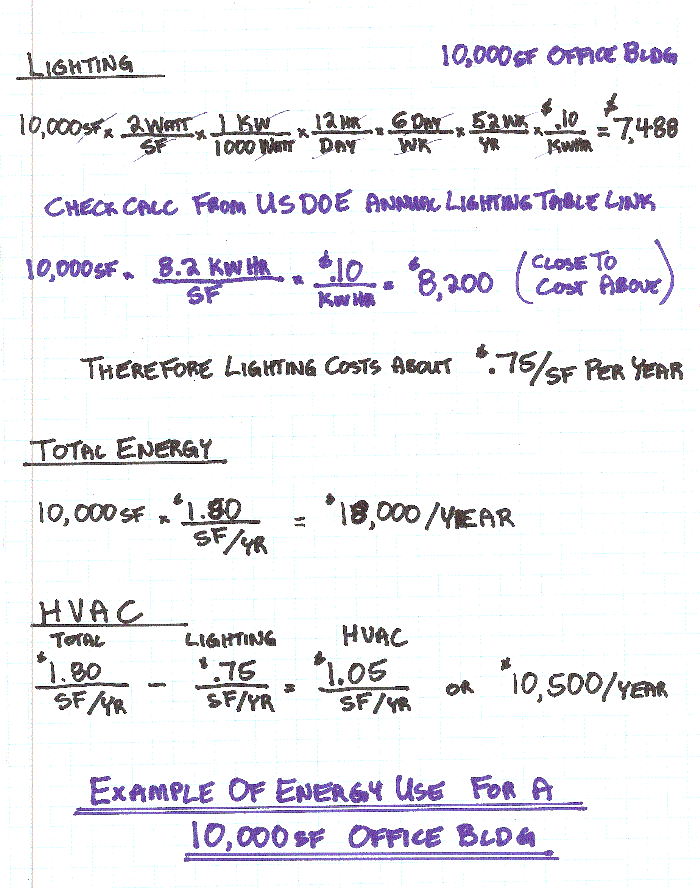 LIGHTING 10,000 SF OFFICE BLDG
10,000 SF x 2 WATT/SF x 1 KW/1000 WATT x 12 HR/DAY x 6 DAY/WK x 52 WK/YR x $.10/KWHR = $7,488
CHECK CALC FROM US DOE ANNUAL LIGHTING TABLE LINK
10,000 SF x 8.2 KWHR/SF x $.10/KWHR = $8,200 (CLOSE TO COST ABOVE)
THEREFORE LIGHTING COSTS ABOUT $.75/SF PER YEAR
TOTAL ENERGY
10,000 SF x $1.80/SF/YR = $18,000/YEAR
HVAC
TOTAL LIGHTING HVAC
$1.80/SF/YR - $.75/SF/YR = $1.05/SF/YR OR $10,500/YEAR
EXAMPLE OF ENERGY USE FOR A
10,000 SF OFFICE BLDG.